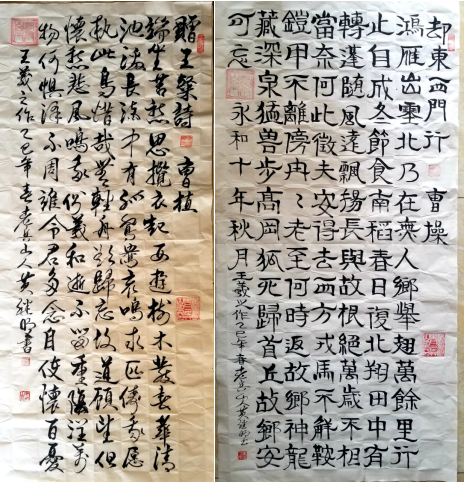 贈王粲詩 曹植
端坐苦愁思攬衣起西遊樹木發春華清
池激長流中有孤鴛鴦哀鳴求匹儔我願
執此鳥惜哉無輕舟欲歸忘故道顧望但
懷愁悲風鳴我側羲和逝不留重陰潤萬
物何懼澤不周誰令君多念自使懷百憂
王羲之作乙巳年春老兵山人黄繼明書
却東西門行 曹操
鴻雁出塞北乃在無人鄉舉翅萬餘里行
止自成冬節食南稻春日復北翔田中有
轉蓬隨風遠飄揚長與故根絕萬歲不相
當奈何此徵夫安得去四方戎馬不解鞍
鎧甲不離傍冉〻老至何時返故鄉神龍
藏深泉猛兽步高岡狐死歸首丘故鄉安
可忘 永和十年秋月王羲之作乙巳年春老兵山人黄繼明書